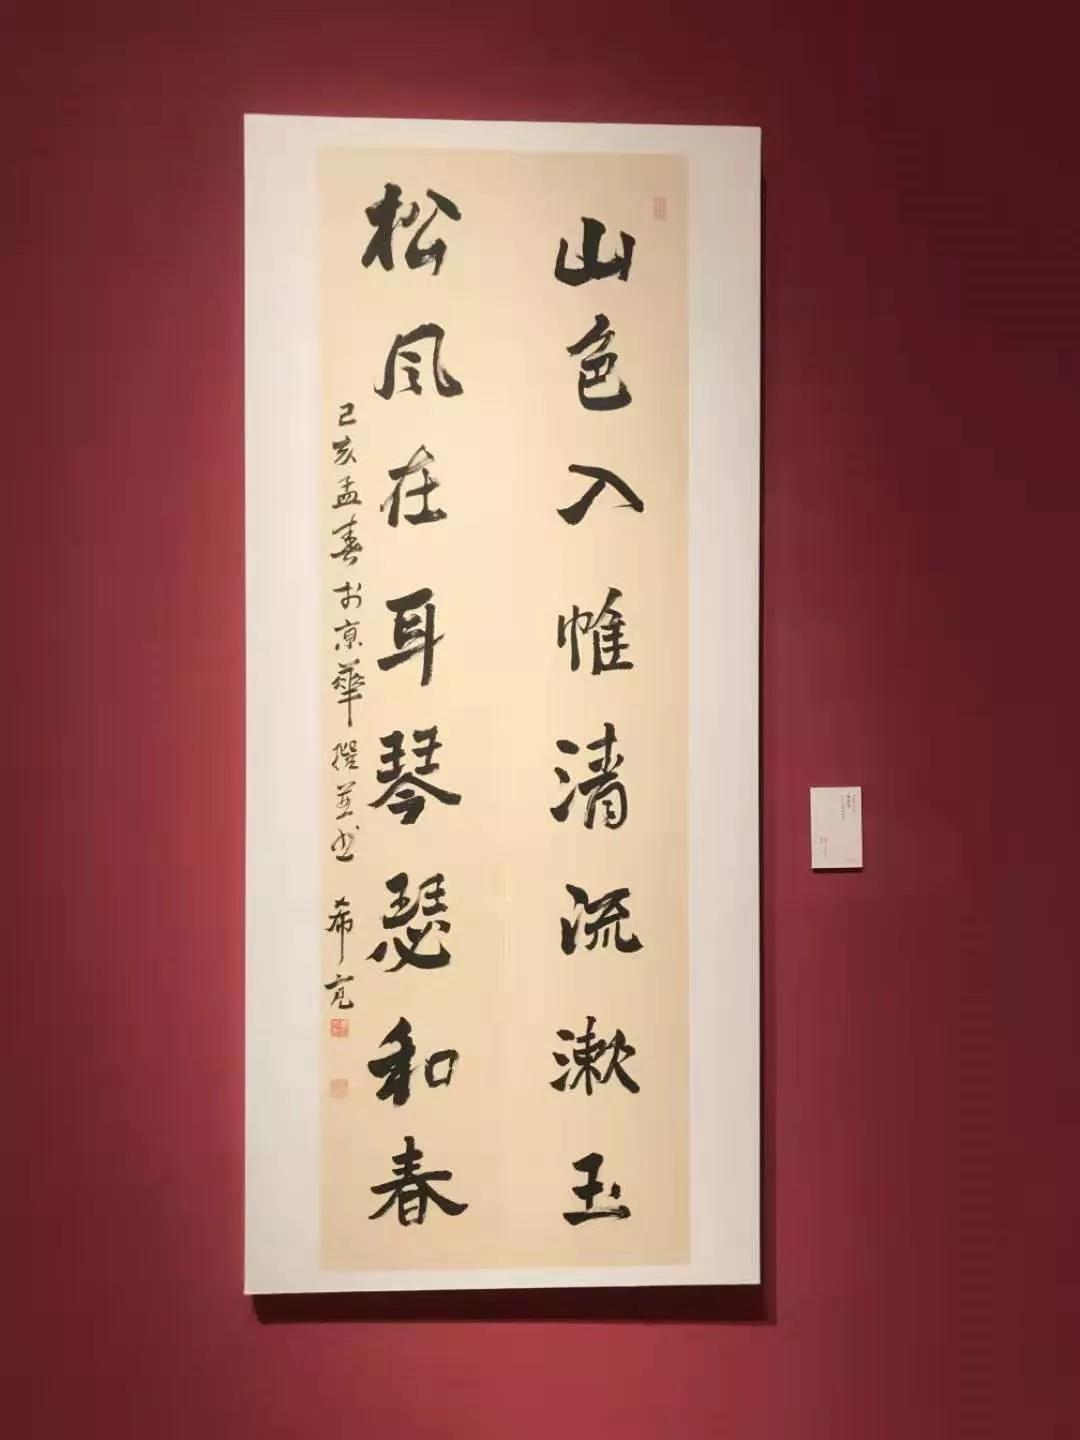 山色入帷清流漱玉
松风在耳琴瑟和春
己亥孟春於京华撰并书 希亮